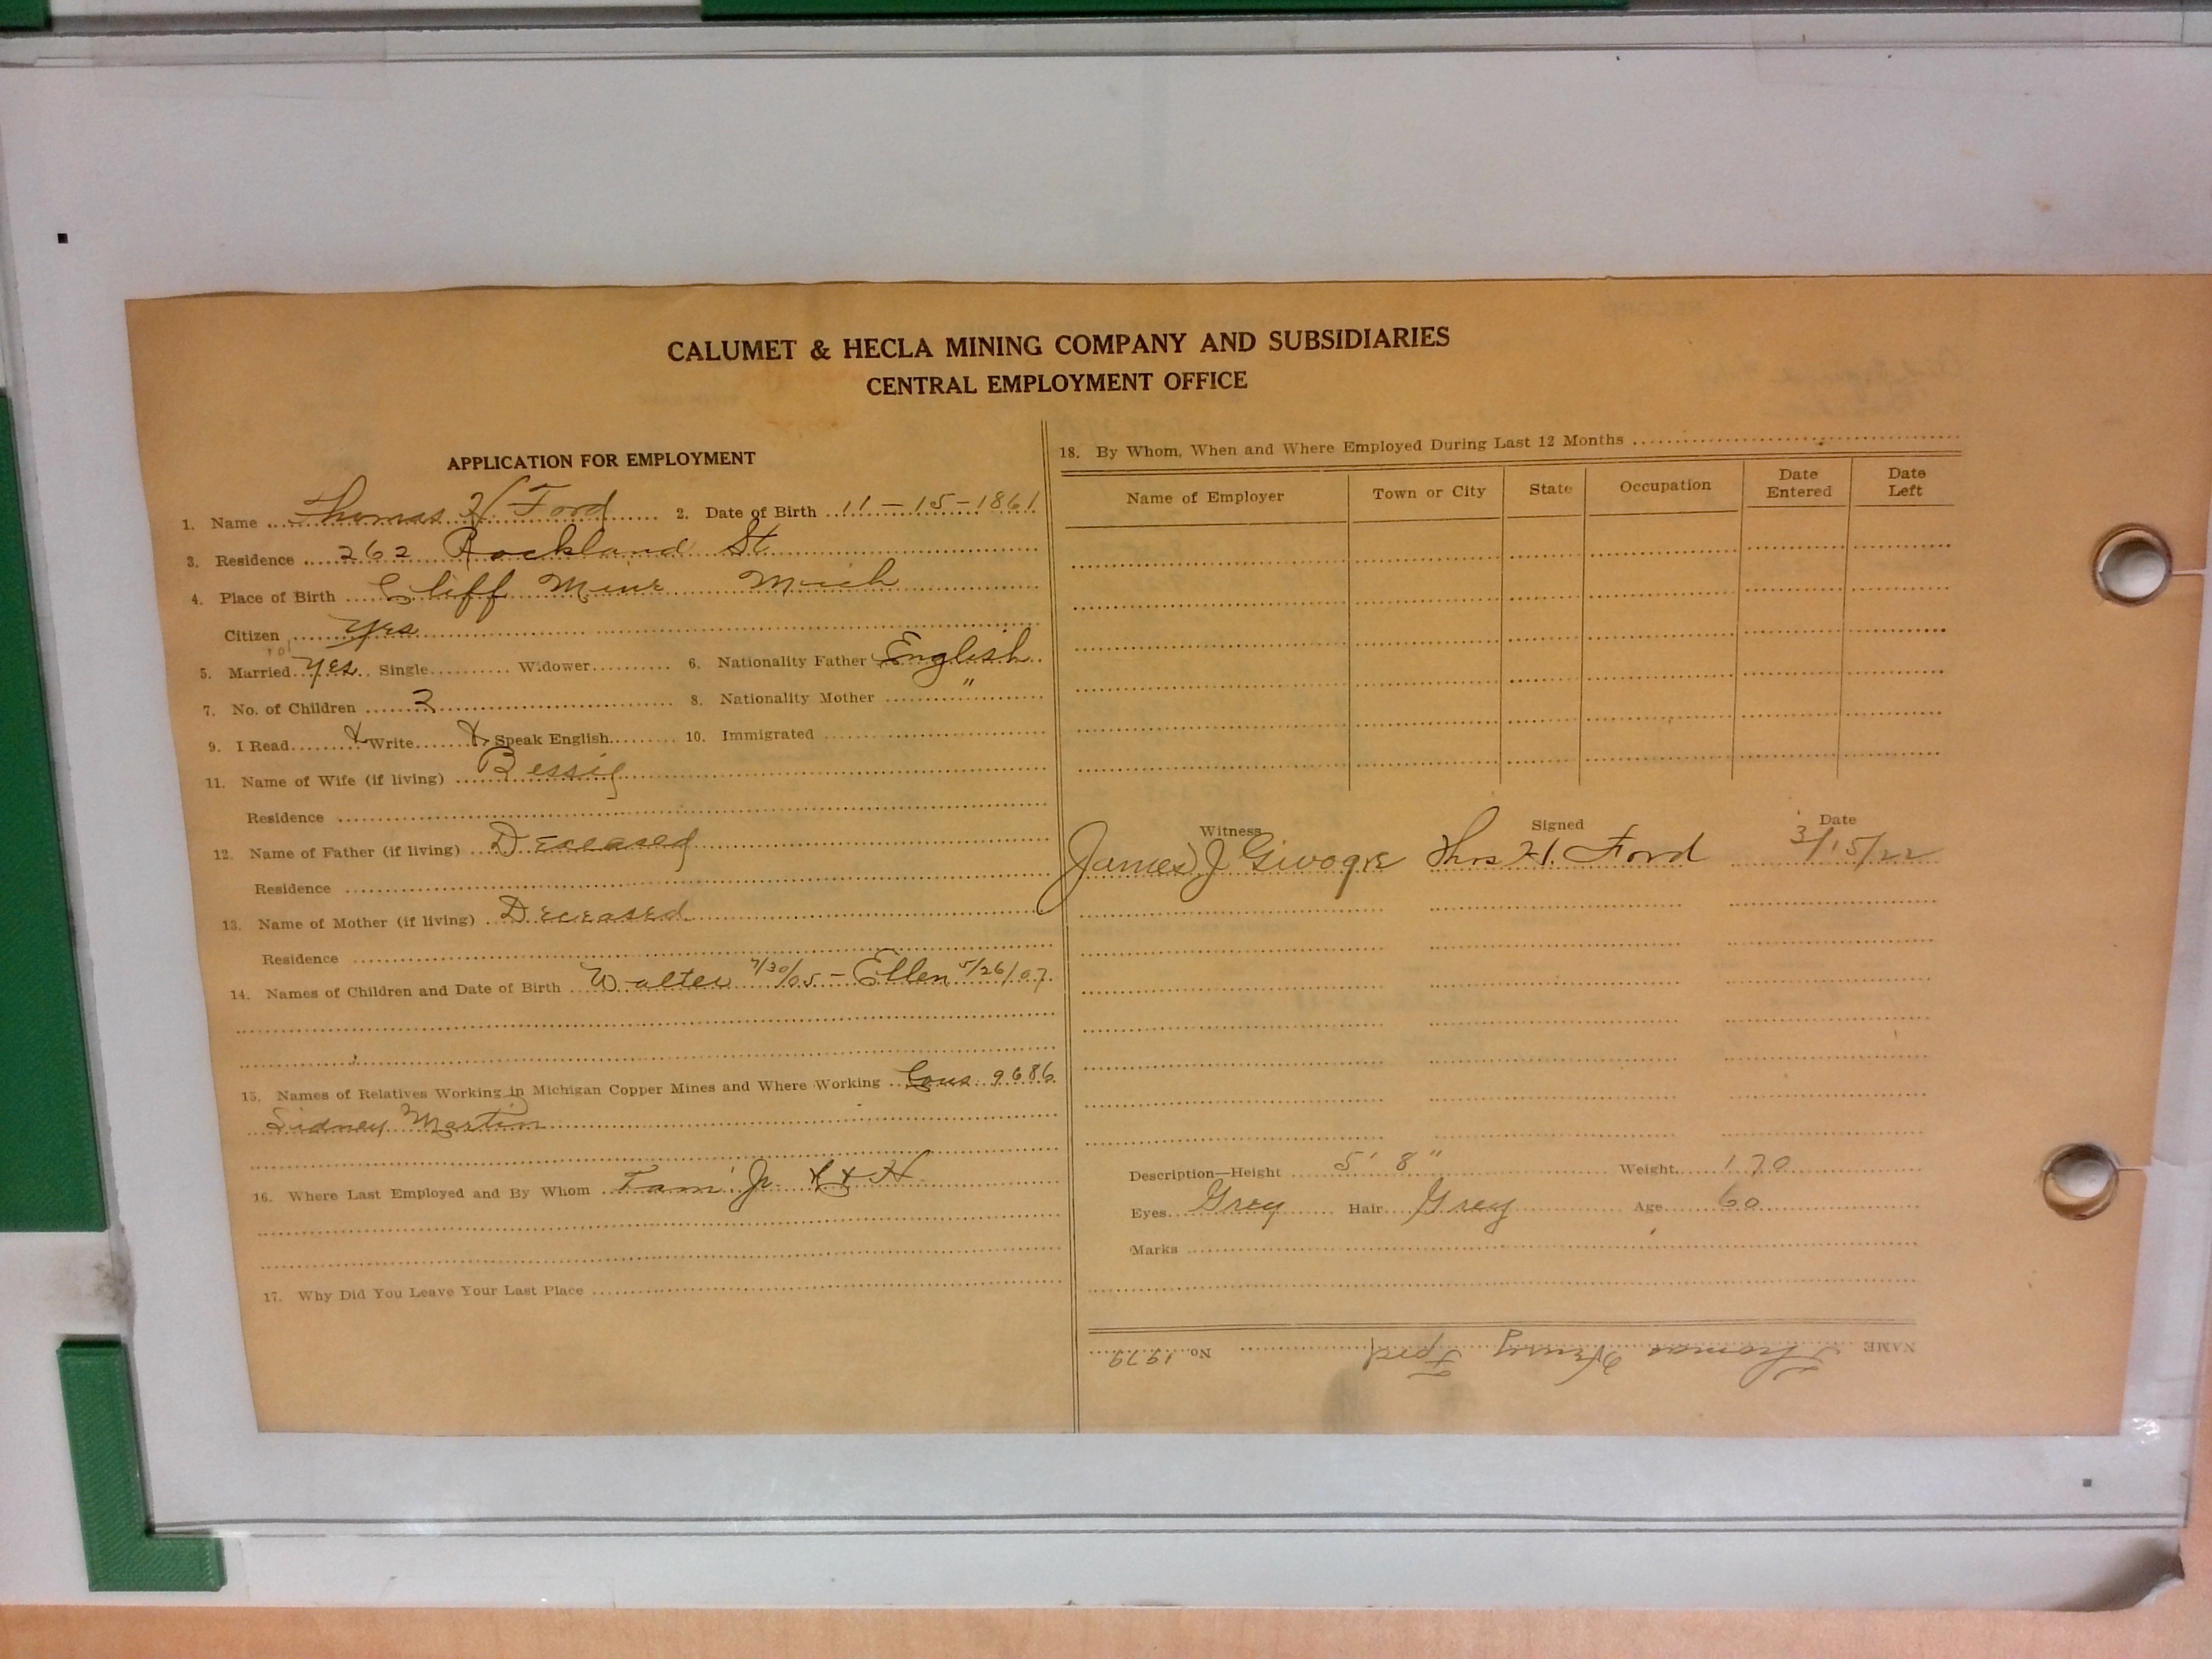 CALUMET & HECLA MINING COMPANY AND SUBSIDIARIES
CENTRAL EMPLOYMENT OFFICE
APPLICATION FOR EMPLOYMENT
1. Name Thomas H Ford 2. Date of Birth 11-15-1861
3. Residence 262 Rockland St
4. Place of Birth Cliff Mine Mich
Citizen Yes
5. Married Yes Single Widower 6. Nationality Father English
7. No. of Children 2 8. Nationality Mother "
9. I Read & Write & Speak English 10. Immigrated
11. Name of Wife (if living) Bessie
Residence
12. Name of Father (if living) Deceased
Residence
13. Name of Mother (if living) Deceased
Residence
14. Names of Children and Date of Birth Walter 7/30/05 - Ellen 5/26/07
15. Names of Relatives Working in Michigan Copper Mines and Where Working 9686
Sidney Martin
16. Where Last Employed and By Whom Tam Jr C & H
17. Why Did You Leave Your Last Place
18. By Whom, When and Where Employed During Last 12 Months
Name of Employer Town or City State Occupation Date Entered Date Left
Witness Signed Date
James J Thos H. Ford 3/15/22
Description—Height 5' 8" Weight 170
Eyes Grey Hair Grey Age 60
Marks
NAME Thomas Henry Ford No. 1979